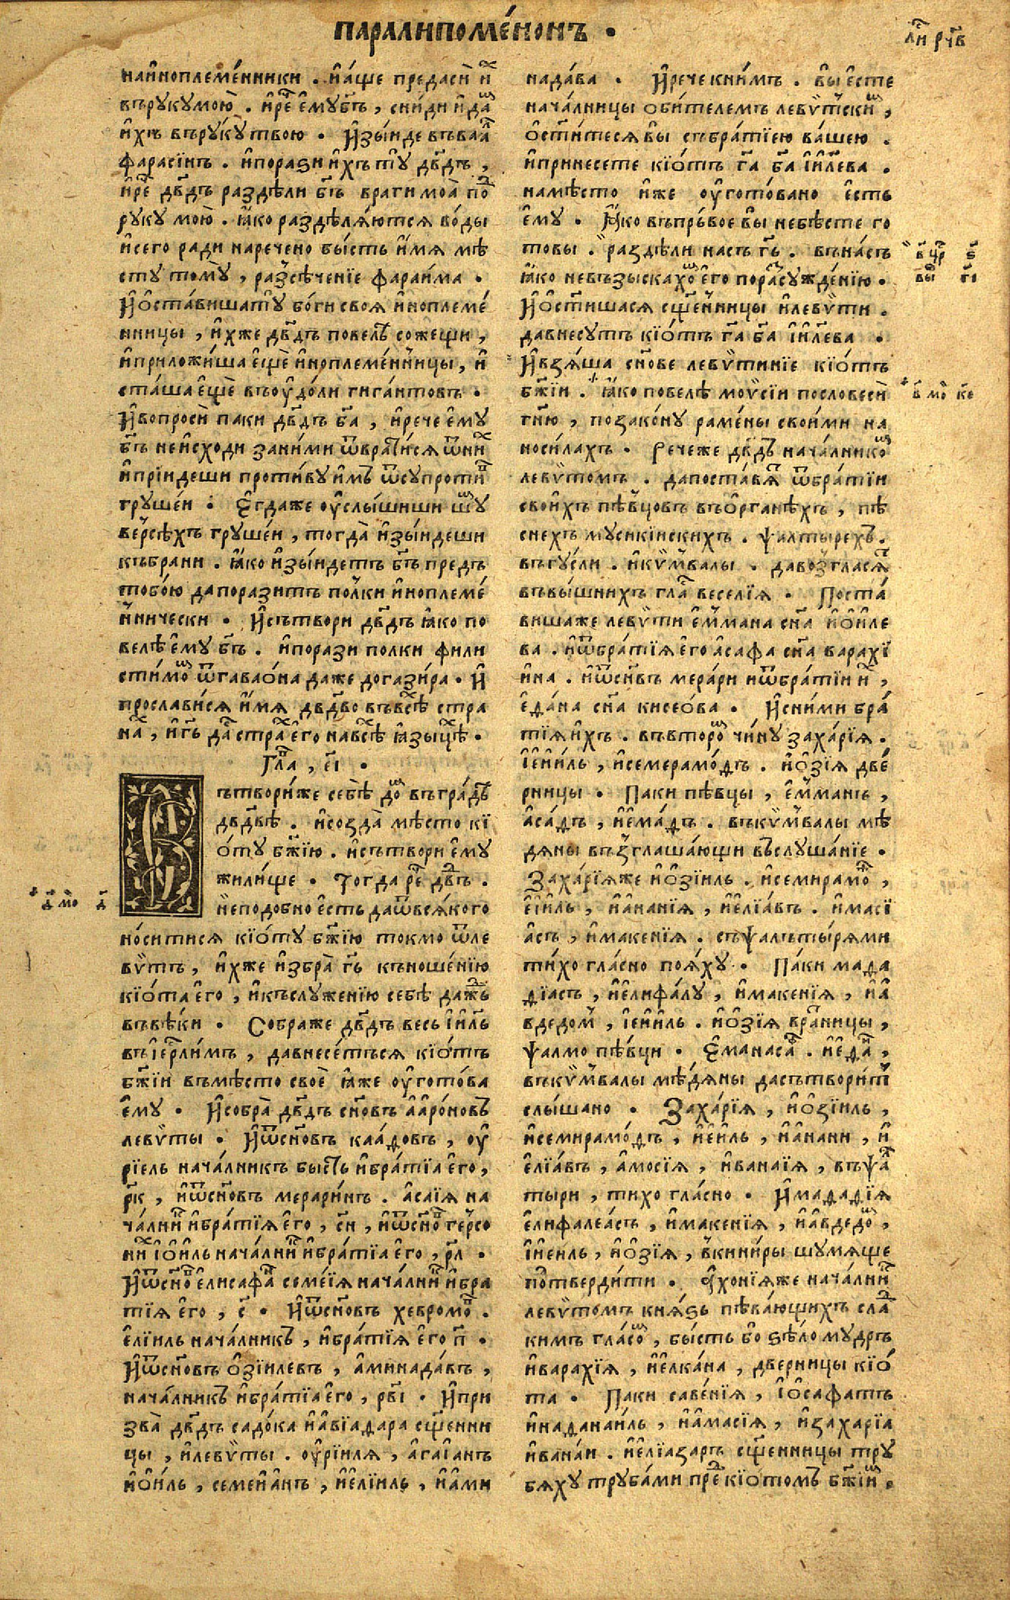 паралипомéнонъ .
лп҃и рч҃в
наи҆ноплемéнники . и҆а҆́ще предаси̑ и҆х
въруку мою̀ . и҆рⷱ҇е є҆му бг҃ъ , сни́ди и҆да́м
и҆хъ въру́ку твою . И҆зы́иде въваⷧ҇а
фарасі́нъ . и҆порази и҆хъ тꙋ̀ дв҃дъ ,
и҆рⷱ҇е дв҃дъ раздѣли бг҃ъ враги̑ моѧ̀ по
руку мою̀ . ꙗ҆́ко раздѣлѧ́ются во́ды
и҆сего ради наречено̀ бы́сть и҆́мѧ мѣ
сту тому̀ , разсѣче́нїе фараи́ма .
И҆ѡ҆ста́вишатꙋ̀ бо́ги своѧ̀ и҆ноплемé
нницы , и҆́хже дв҃дъ повелѣ̀ сожещи ,
и҆приложи́ша є҆щѐ и҆ноплемéнницы , и҆
ста́ша є҆щѐ въѹ҆до́ли гига́нтовъ .
И҆вопроси̑ паки дв҃дъ бг҃а , и҆рече є҆му
бг҃ъ неи҆сходи за ни́ми ѿврати́сѧ ѿни́х
и҆прїидеши проти́ву и҆́мъ ѿсупроти́в
грушéи . Є҆гдаже ѹ҆слы́шиши шꙋ́м
ве́рсѣхъ грушéи , тогда̀ и҆зы́идеши
къбрани . ꙗ҆́ко и҆зы́идетъ бг҃ъ предъ
тобо́ю да порази́тъ по́лки и҆ноплемé
ннически . И҆сътвори дв҃дъ ꙗ҆́ко по
велѣ̀ є҆му бг҃ъ . и҆порази полки фили
сти́моⷨ ѿгаваѡ́на даже догази́ра . и҆
просла́висѧ и҆́мѧ дв҃дво въвсѣ̀ стра
наⷯ , и҆гь҃ даⷭ҇ страⷯ є҆го навсѣ̀ ꙗ҆зы́цѣⷯ .
Глⷡ҇а , є҃і .
Сътвори́же себѣ̀ доⷨ въгра́дѣ
дв҃двѣ . и҆созда̀ мѣ́сто кї
ѡ́ту бж҃їю . и҆сътвори є҆му
жили́ще . Тогда рⷱ҇е дв҃дъ .
неподо́бно є҆сть даѿвсѧ́кого
носи́тисѧ кїѡ́ту бж҃їю токмо ѿле
вѵ́тъ , и҆́хже и҆збра̀ гь҃ къноше́нїю
кїѡ́та є҆го , и҆къслуже́нїю себѣ̀ даже
въвѣ́ки . Собра́же дв҃дъ весь і҆и҃ль
въі҆ер҃лимъ , давнесе́тьсѧ кїѡ́тъ
бж҃їи въмѣ́сто своѐ ꙗ҆́же ѹ҆гото́ва
є҆му . И҆собра̀ дв҃дъ сн҃овъ а҆аро́новъ
левѵ́ты . И҆ѿсн҃овъ каа́довъ , ѹ҆
рїель нача́лникъ бы́сть и҆бра́тїа є҆го ,
рк҃ , и҆ѿсн҃овъ мерари́нъ . а҆саїѧ на
ча́лниⷦ и҆бра́тїѧ є҆го , ск҃ , и҆ѿсн҃оⷡ ге́рсо
ниⷯ і҆ѡи́ль нача́лниⷦ и҆бра́тїа є҆го , рл҃ .
И҆ѿсн҃оⷡ є҆лисафа́н семе́їѧ нача́лниⷦ и҆бра
тїѧ є҆го , с҃ . И҆ѿсн҃овъ хебромоⷡ .
є҆лїиль нача́лникъ , и҆бра́тїѧ є҆го п҃ .
И҆ѿсн҃овъ ѻ҆зїилевъ , а҆минада́въ ,
нача́лникъ и҆бра́тїа є҆го , рв҃і . И҆при
зва̀ дв҃дъ садо́ка и҆а҆вїадара сщ҃енни
цы , и҆левѵ̀ты . ѹ҆рїилѧ , а҆саїанъ
и҆ѡи́ль , семеи҆а́нъ , и҆є҆лїиль , и҆а҆ми
нада́ва . И҆рече книмъ . вы̀ є҆сте
нача́лницы ѡ҆би́телемъ левѵ́тскиⷨ ,
ѡ҆ст҃и́тесѧ вы̀ събра́тїею ва́шею .
и҆принесете кїѡ́тъ га҃ ба҃ і҆и҃лева .
намѣ́сто и҆́же ѹ҆гото́вано є҆сть
є҆му . Ꙗ҆́ко въпрь́вое вы̀ небѣ́сте го
то́вы . раздѣли насъ гь҃ . въна́съ
ꙗ҆́ко невъзыска́хоⷨ є҆го поразсужде́нїю .
И҆ѡ҆ст҃и́шасѧ сщ҃е́нницы и҆левѵ́ти .
давнесутъ кїѡ́тъ га҃ ба҃ і҆и҃лева .
И҆взѧ́ша сн҃ове левѵ́тинїе кїѡ́тъ
бж҃їи . ꙗ҆́ко повелѣ̀ моѵсїи пословеси̑
гн҃ю , позако́ну раме́ны свои́ми на
носи́лахъ . Рече́же дв҃дъ нача́лникоⷨ
левѵ́томъ . дапоста́вѧⷮ ѿбра́тїи
свои́хъ пѣвцовъ въѻ҆рга́нѣхъ , пѣ
снехъ мусикі́искихъ . ѱалты́рехъ .
въгу́сли . и҆кѵ́мвалы . давозгла́сѧⷮ
въвы́шнихъ глаⷭ҇ весе́лїѧ . Поста́
вишаже левѵ́ти є҆мма́на сн҃а и҆ѡи́ле
ва . и҆ѿбра́тїѧ є҆го а҆са́фа сн҃а варахі́
ина . и҆ѿси́въ мера́ри и҆ѿбра́тїи и҆х ,
є҆да́на сн҃а кисео́ва . И҆сни́ми бра́
тїѧ и҆́хъ . въвторо́м чи́ну заха́рїѧ .
і҆еи́иль , и҆семерамо́дъ . и҆ѻ҆зїѧ две́
рницы . Паки пѣвцы , є҆мма́нъ ,
а҆са́дъ , и҆е҆ма́дъ . въкѵ́мвалы мѣ
дѧны възглаша́ющи въслуша́нїе .
Заха́рїѧже и҆ѻ҆зїиль . и҆семирамо́ⷮ ,
є҆и́иль , и҆а҆на́нїѧ , и҆є҆лїа́въ . и҆масі
а҆съ , и҆маке́нїѧ . съѱалътырѧми
ти́хо гла́сно поѧ́ху . Паки мада
дїасъ , и҆є҆лифа́лу , и҆маке́нїѧ , и҆а҆
вдедоⷨ , і҆еи́иль . и҆ѻ҆зїѧ вра́тницы ,
ѱалмо пѣвци . є҆манасⷭ . и҆е҆да́ⷩ ,
въкѵ́мвалы мѣ́дѧны дасътворѧ́тъ
слы́шано . Заха́рїѧ , и҆ѻ҆зїиль ,
и҆семирамо́дъ , и҆еи́иль , и҆а҆нани , и҆
є҆лїа́въ , а҆мосїѧ , и҆ванаїѧ , въѱаⷧ
тыри , тихо гла́сно . И҆мада́дїѧ
є҆лифалеа́съ , и҆маке́нїѧ , и҆а҆вдедо́ⷨ ,
і҆иеиль , и҆ѻ҆зїѧ , вкини́ры шумѧще
потверди́ти . Ꙗ҆хонїѧже нача́лниⷦ
левѵ́томъ кнѧ́зь пѣва́ющихъ сла́ⷣ
кимъ гла́соⷨ , бы́сть бо ѕѣло̀ му́дръ
и҆варахїѧ , и҆є҆лка́на , две́рницы кїѡ́
та . Паки саве́нїѧ , і҆ѡсафа́тъ
и҆нада́наиль , и҆а҆ма́сїѧ , и҆заха́рїа
и҆вана́и . и҆є҆лїаза́ръ сщ҃е́нницы тру
бѧ́ху труба́ми преⷣ кїѡ́томъ бж҃їиⷨ .